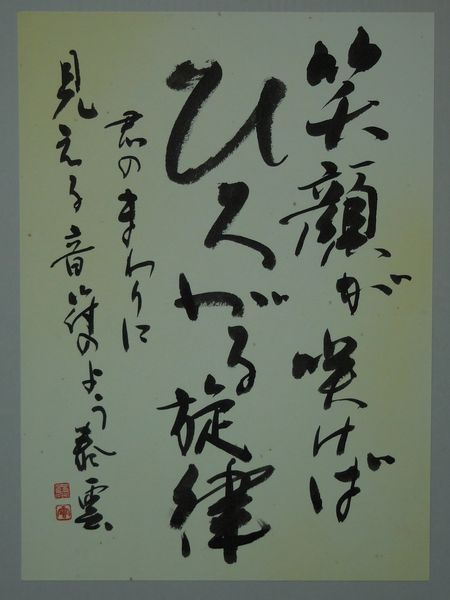 笑顔が咲けば
ひろがる旋律
君のまわりに
見える音符のよう 泰雲